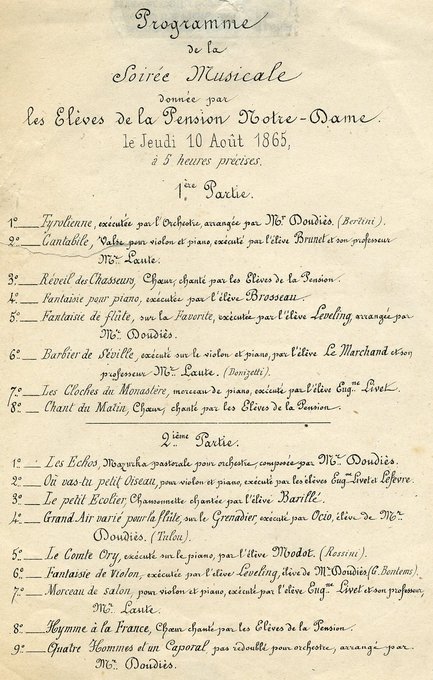 Programme
de la
Soirée Musicale
donnée par
les Elèves de la Pension Notre-Dame.
le Jeudi 10 Août 1865,
à 5 heures précises.
1ère Partie.
1º Tyrolienne, exécutée par l'Orchestre, arrangée par Mr Doudiès. (Bertini).
2º Cantabile, Valse pour violon et piano, exécuté par l'élève Brunet et son professeur
Mr. Laute.
3º Réveil des Chasseurs, Chœur, chanté par les Elèves de la Pension.
4º Fantaisie pour piano, exécutée par l'élève Brosseau.
5º Fantaisie de flûte, sur la Favorite, exécutée par l'élève Leveling, arrangée par
Mr. Doudiès.
6º Barbier de Séville, exécuté sur le violon et piano, par l'élève Le Marchand et son
professeur Mr. Laute. (Donizetti).
7º Les Cloches du Monastère, morceau de piano, exécuté par l'élève Eugme Livet.
8º Chant du Matin, Chœur, chanté par les Elèves de la Pension.
2ième Partie.
1º Les Echos, Mazurka pastorale pour orchestre, composée par Mr. Doudiès.
2º Où vas-tu petit Oiseau, pour violon et piano, exécuté par les élèves Eugme Livet et Lefèvre.
3º Le petit Ecolier, Chansonnette chantée par l'élève Barillé.
4º Grand Air varié pour la flûte, sur le Grenadier, exécuté par Ocio, élève de Mr.
Doudiès. (Tulou).
5º Le Comte Ory, exécuté sur le piano, par l'élève Modot. (Rossini).
6º Fantaisie de Violon, exécutée par l'élève Leveling, élève de Mr. Doudiès (G. Bontems).
7º Morceau de salon, pour violon et piano, exécuté par l'élève Eugme Livet et son professeur,
Mr. Laute.
8º Hymme à la France, Chœur chanté par les Elèves de la Pension.
9º Quatre Hommes et un Caporal, pas redoublé pour orchestre, arrangé par
Mr. Doudiès.